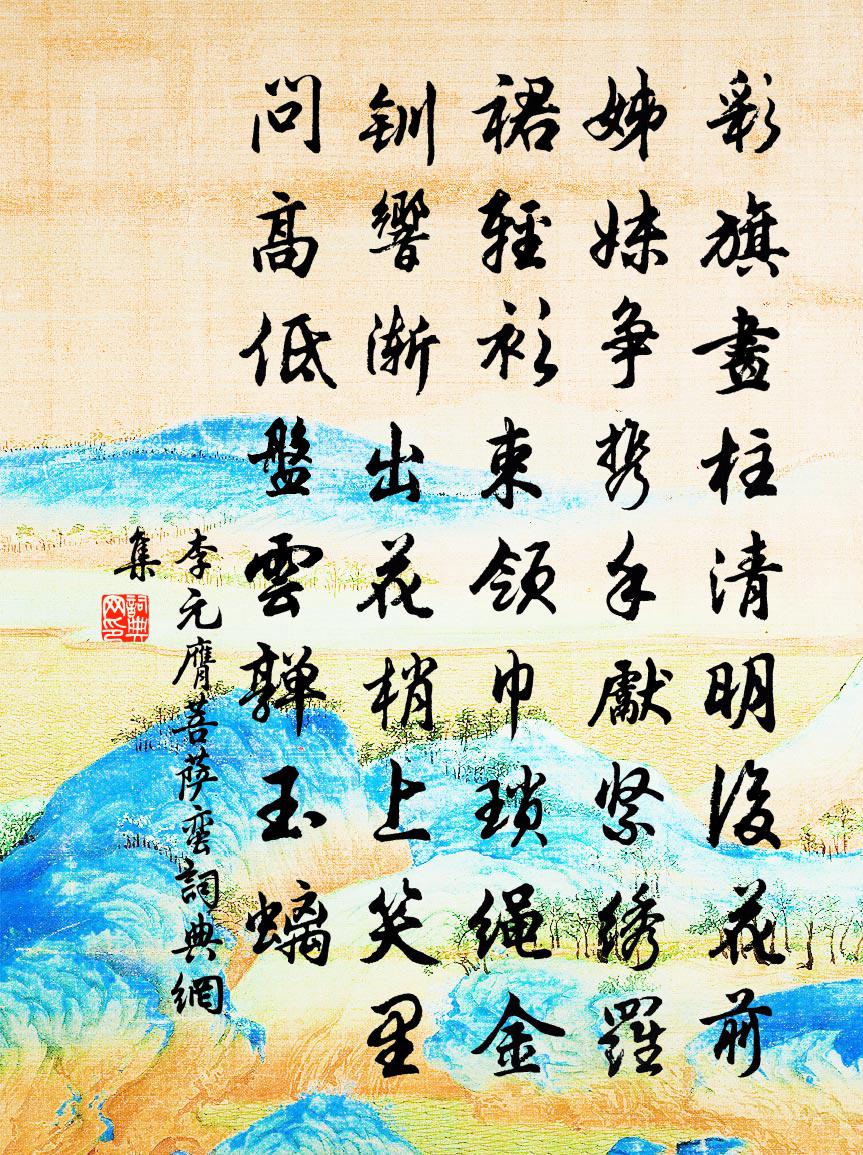 彩旗畫柱清明後花前
姊妹争携手獻紧綉羅
裙輕衫束領巾瑣绳金
釧響漸出花梢上笑里
問高低盤雲嚲玉螭
李元膺菩萨蛮詞典網
集
詞典网印